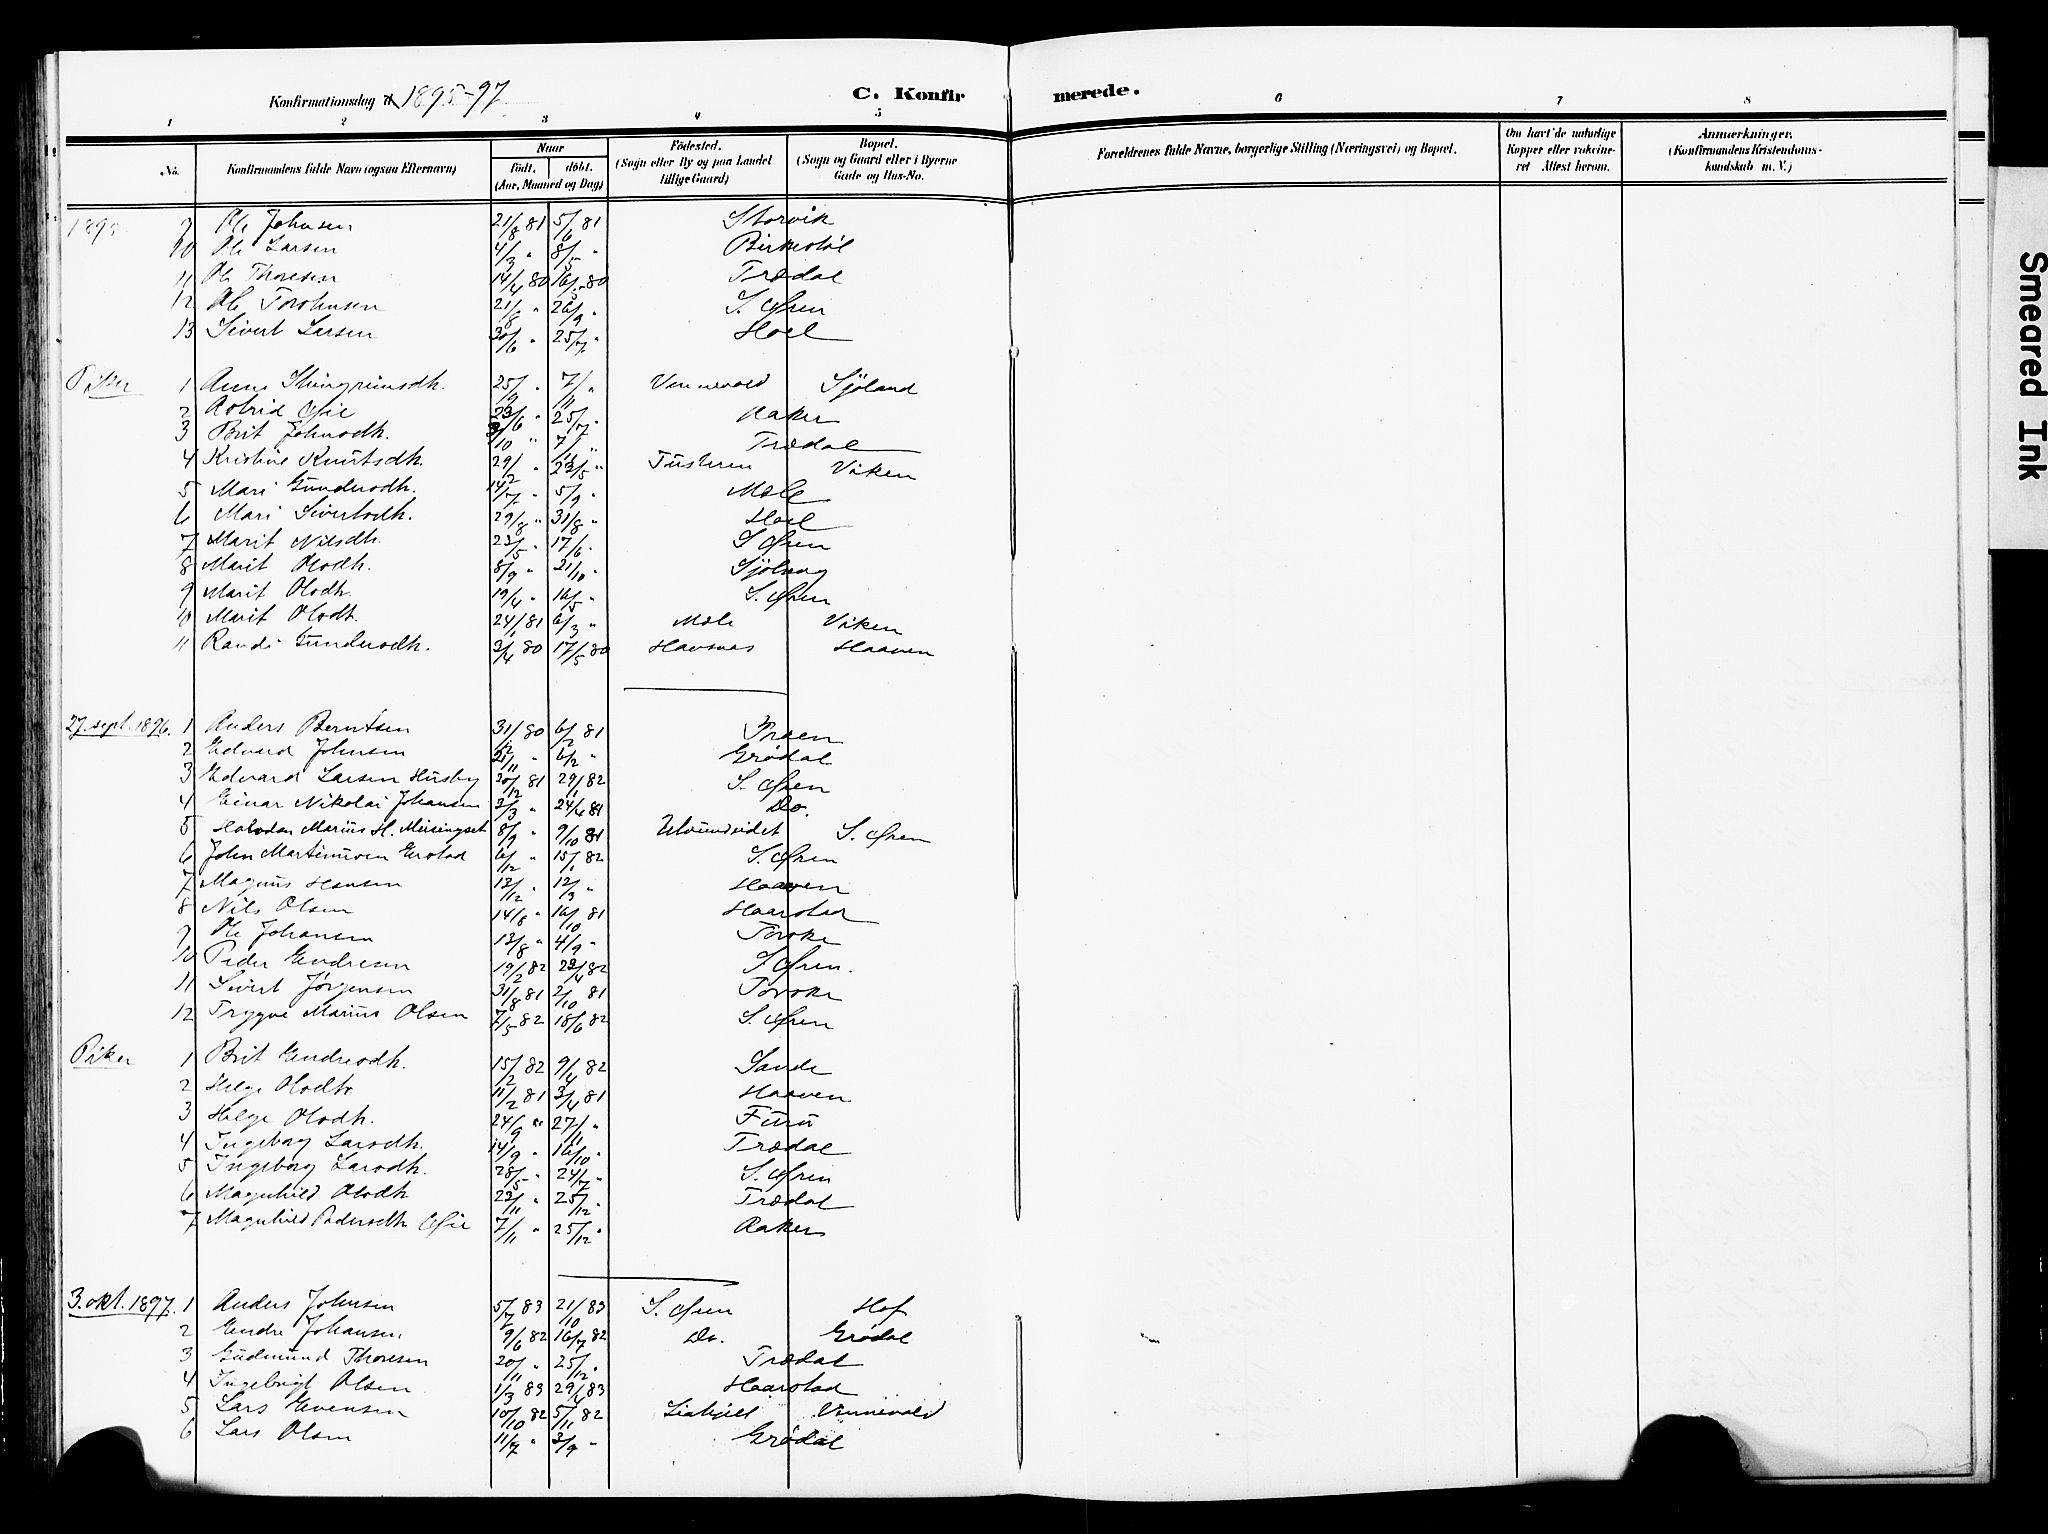 Konfirmationsdag d 1895-97.
C. Konfirmerede.
1 2 3 4 5 6 7 8
No. Konfirmandens fulde Navn (ogsaa Efternavn) Naar født. døbt. (Aar, Maaned og Dag) Fødested. (Sogn eller By og paa Landet tillige Gaard) Bopæl. (Sogn og Gaard eller i Byerne Gade og Hus-No. Forældrenes fulde Navne, borgerlige Stilling (Næringsvei) og Bopæl. Om havt de naturlige Kopper eller vakcineret Attest herom. Anmærkninger. (Konfirmandens Kristendomskundskab m. V.)
1895 9 Ole Johnsen 21/8 81 5/6 81 Storvik
10 Ole Larsen 4/3 " 8/5 " Birkestøl
11 Ole Thoresen 14/4 80 16/5 80 Trædal
12 Ole 21/8 " 26/9 " S. Øren
13 Sivert Larsen 30/6 " 25/7 " Hoel
Piker 1 Anne Steingrimsdh. 25/9 " 7/11 " Vennevold Sjøland
2 Astrid Øie 23/6 " 25/7 " Aaker
3 Brit Johnsdh. 3/10 " 7/11 " Trædal
4 Kristine Knutsdh. 29/2 " 23/5 " Tusteren Viken
5 Mari Gundersdh. 14/7 " 5/9 " Mæle
6 Mari Sivertsdh. 29/8 " 31/8 " Hoel
7 Marit Nilsdh. 23/5 " 17/6 " S. Øren
8 Marit Olsdh. 8/9 " 21/10 " Sjølseng
9 Marit Olsdh. 19/4 " 16/5 " S. Øren
10 Marit Olsdt. 24/1 81 6/3 " Mæle Viken
11 Randi Gundersdh. 3/4 80 17/5 80 Havsnæs Haaven
27. sept. 1896. 1 Anders Berntsen 31/12 80 6/2 81
2 Edvard Johnsen 21/11 " 6/2 " Grødal
3 Edvard Larsen Husby 30/12 81 29/1 82 S. Øren
4 Einar Nikolai Johansen 3/3 " 24/4 81 Do.
5 Halvdan Marius H. Meisingset 8/9 " 9/10 81 Ulvundeidet S. Øren
6 John Martinusen Erstad 6/12 " 15/1 82 S. Øren
7 Magnus Hansen 13/12 " 12/3 " Haaven
8 Nils Olsen 14/8 " 16/10 81 Haarstad
9 Ole Johansen 13/8 " 4/9 " Torske
10 Peder Endresen 19/2 82 23/4 82 S Øren.
11 Sivert Jørgensen 31/8 81 2/10 81 Torske
12 Trygve Marius Olsen 7/5 82 18/6 82 S. Øren
Piker 1 Brit Endresdh. 15/2 82 9/4 82 Sande
2 Helge Olsdtr 11/2 81 3/4 81 Haaven
3 Helge Olsdh. 24/9 " 27/11 " Furu
4 Ingeborg Larsdh. 14/9 " 16/10 " Trædal
5 Ingeborg Larsdh. 28/5 " 24/7 " S. Øren
6 Magnhild Olsdh 23/11 " 25/12 " Trædal
7 Magnhild Pedersdh Øie 7/11 " 25/12 " Aaker
3. okt. 1897. 1 Anders Johnsen 5/7 83 21/10 83 S. Øren Hof
2 Endre Johansen 9/6 82 16/7 82 Do. Grødal
3 Gudmund Thoresen 20/11 " 25/12 " Trædal
4 Ingebrigt Olsen 1/3 83 29/4 83 Haarstad
5 Lars Evensen 10/10 82 5/11 82 Vennevold
6 Lars Olsen 11/7 " 3/9 " Grødal
Smeared Ink